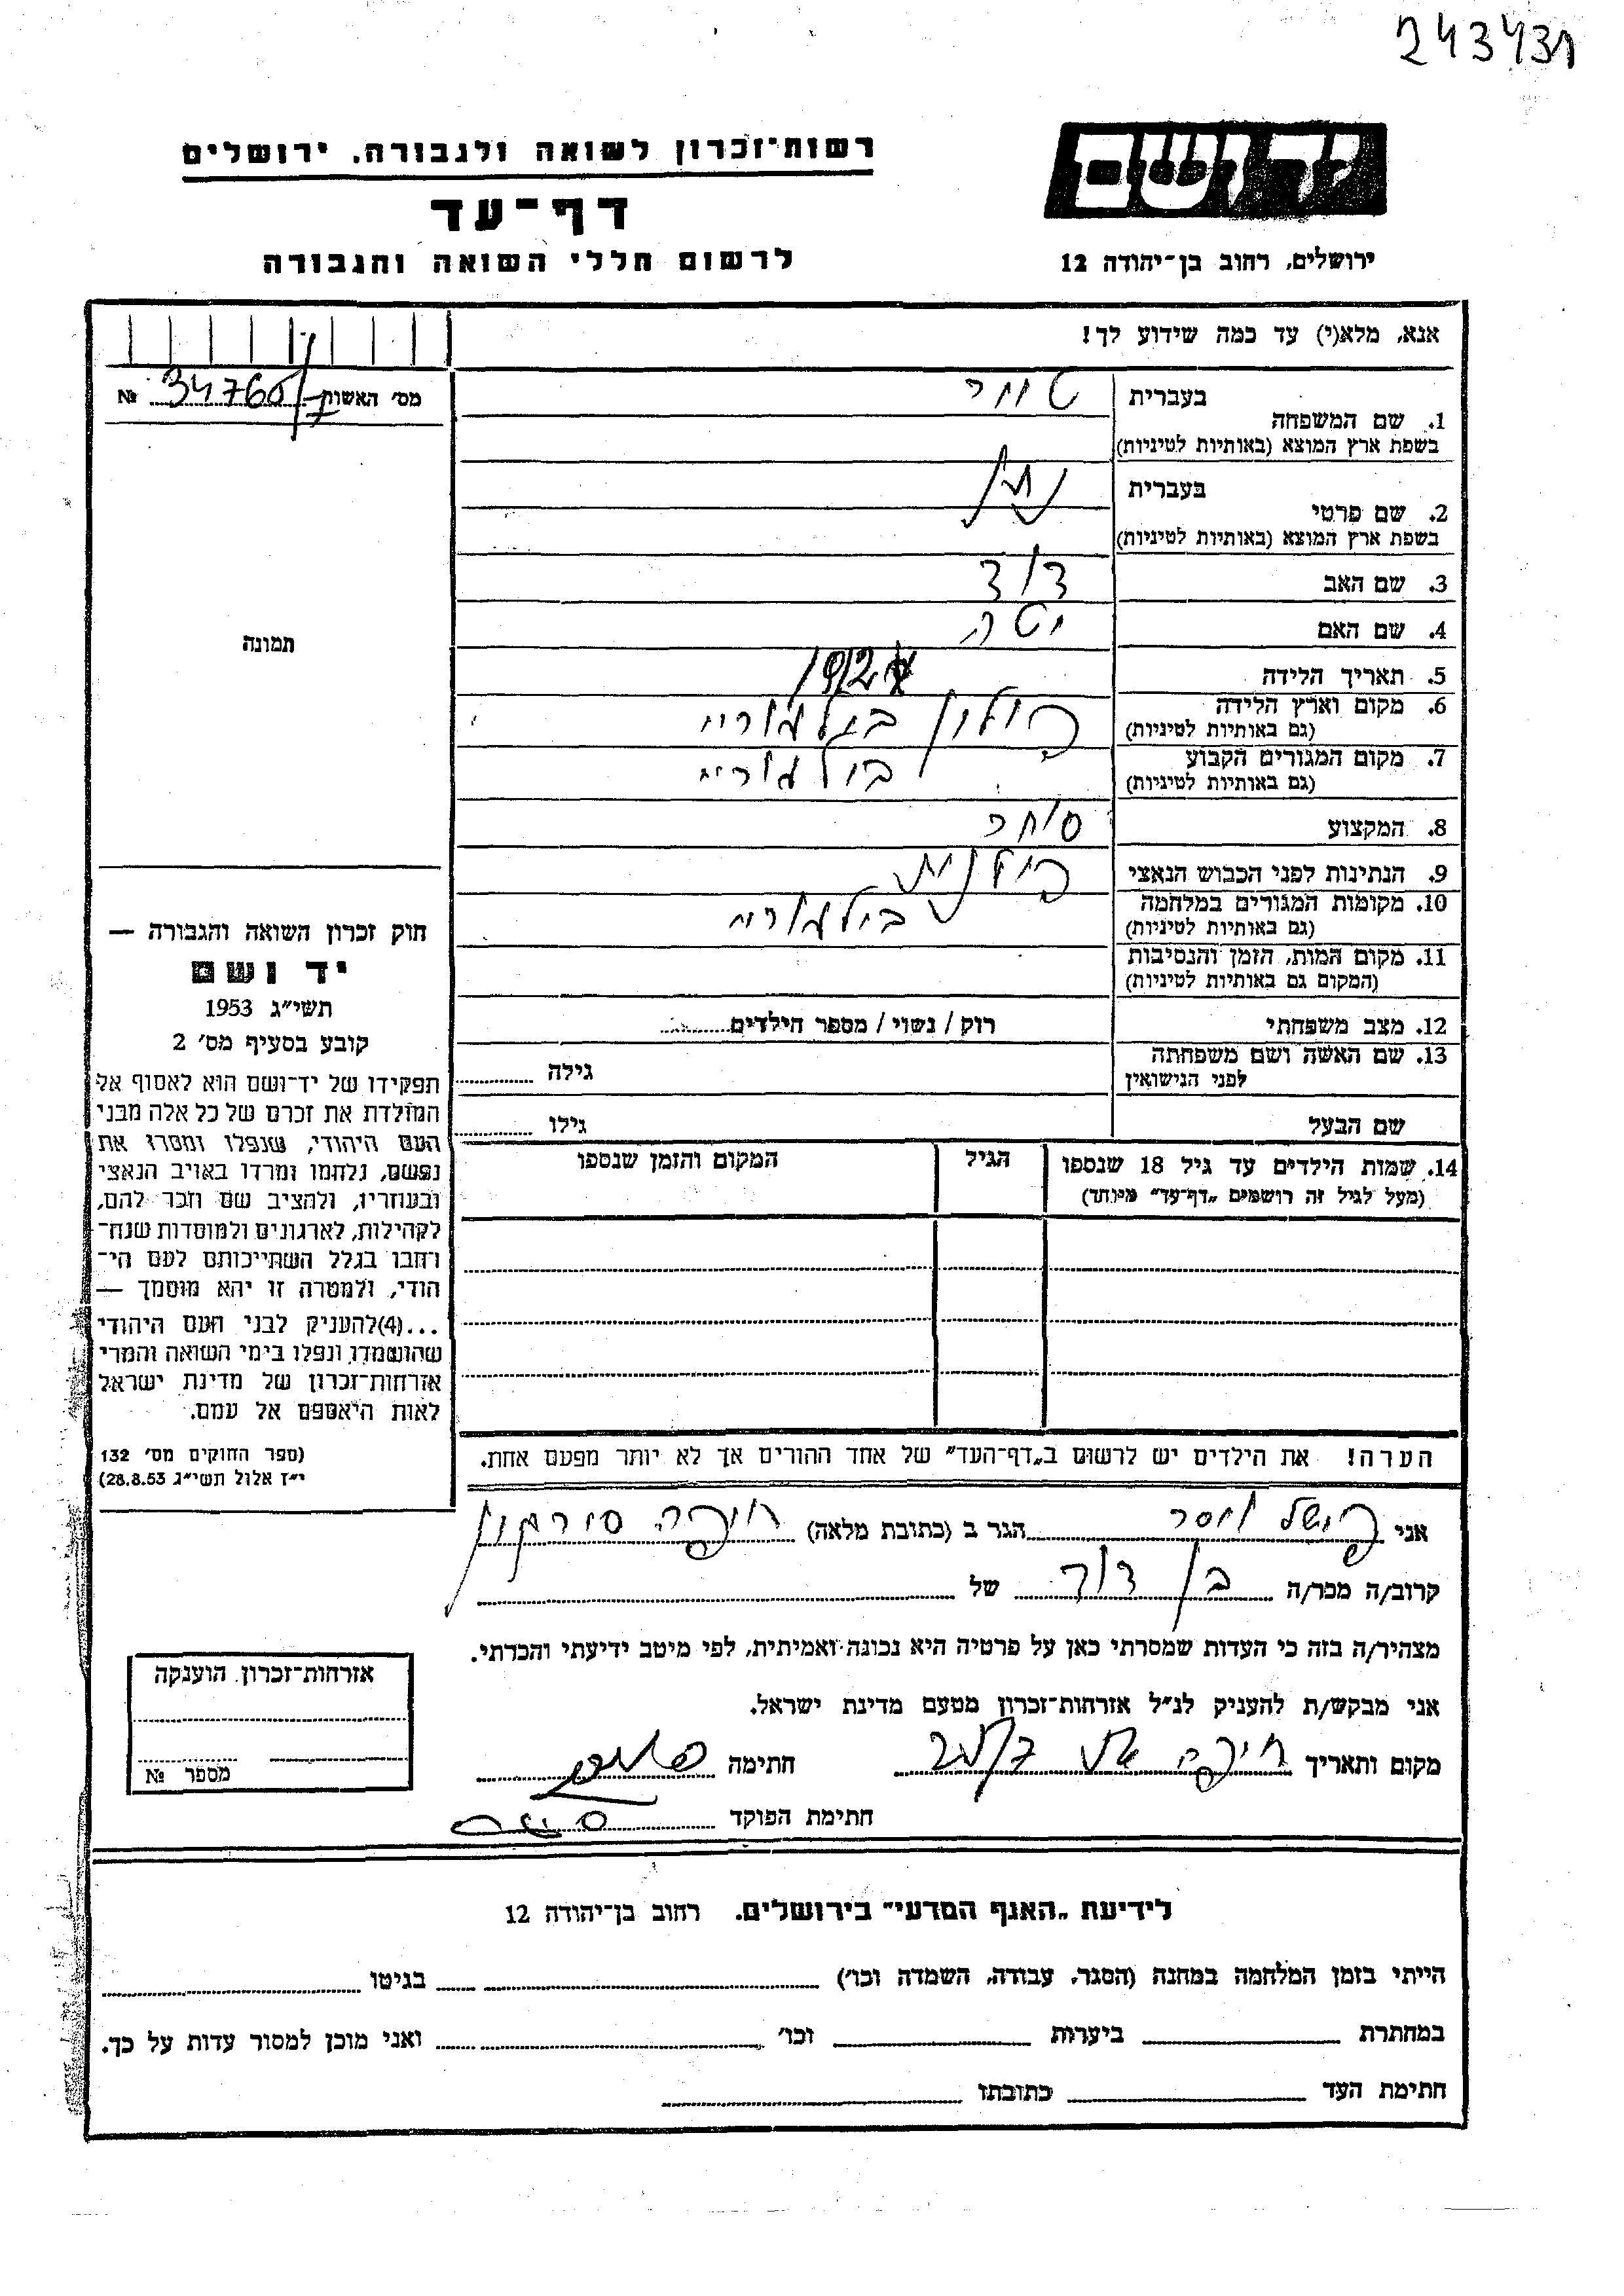 243431
רשות־זכרון לשואה ולגבורה. ירושלים
דף־עד
לרשום חללי השואה והגבורה
יד ושם
ירושלים, רחוב בן־יהודה 12
אנא, מלא(י) עד כמה שידוע לך!
מס׳ האשות 34760/7 №
1. שם המשפחה
בעברית
בשפת ארץ המוצא (באותיות לטיניות)
2. שם פרטי
בעברית נתן
בשפת ארץ המוצא (באותיות לטיניות)
3. שם האב דוד
4. שם האם יטה
5. תאריך הלידה 1912
6. מקום וארץ הלידה פולון בילגוריי
(גם באותיות לטיניות)
7. מקום המגורים הקבוע בילגוריי
(גם באותיות לטיניות)
8. המקצוע סוחר
9. הנתינות לפני הכבוש הנאצי פולנית
10. מקומות המגורים במלחמה בילגוריי
(גם באותיות לטיניות)
11. מקום המות, הזמן והנסיבות
(המקום גם באותיות לטיניות)
12. מצב משפחתי רוק / נשוי / מספר הילדים
13. שם האשה ושם משפחתה
לפני הנישואין
גילה
שם הבעל גילו
14. שמות הילדים עד גיל 18 שנספו
(מעל לגיל זה רושמים „דף־עד״ מיוחד)
הגיל
המקום והזמן שנספו
תמונה
חוק זכרון השואה והגבורה —
יד ושם
תשי״ג 1953
קובע בסעיף מס׳ 2
תפקידו של יד־ושם הוא לאסוף אל
המולדת את זכרם של כל אלה מבני
העם היהודי, שנפלו ומסרו את
נפשם, נלחמו ומרדו באויב הנאצי
ובעוזריו, ולהציב שם וזכר להם,
לקהילות, לארגונים ולמוסדות שנח־
רבו בגלל השתייכותם לעם הי־
הודי, ולמטרה זו יהא מוסמך —
...(4)להעניק לבני העם היהודי
שהושמדו ונפלו בימי השואה והמרי
אזרחות־זכרון של מדינת ישראל
לאות היאספם אל עמם.
(ספר החוקים מס׳ 132
י״ז אלול תשי״ג 28.8.53)
הערה! את הילדים יש לרשום ב„דף־העד״ של אחד ההורים אך לא יותר מפעם אחת.
אני הגר ב (כתובת מלאה) חיפה
קרוב/ה מכר/ה בן דוד של
מצהיר/ה בזה כי העדות שמסרתי כאן על פרטיה היא נכונה ואמיתית, לפי מיטב ידיעתי והכרתי.
אני מבקש/ת להעניק לנ״ל אזרחות־זכרון מטעם מדינת ישראל.
מקום ותאריך חיפה חתימה
חתימת הפוקד
אזרחות־זכרון הוענקה
מספר №
לידיעת „האגף המדעי״ בירושלים. רחוב בן־יהודה 12
הייתי בזמן המלחמה במחנה (הסגר, עבודה, השמדה וכו׳) בגיטו
במחתרת ביערות וכו׳ ואני מוכן למסור עדות על כך.
חתימת העד כתובתו